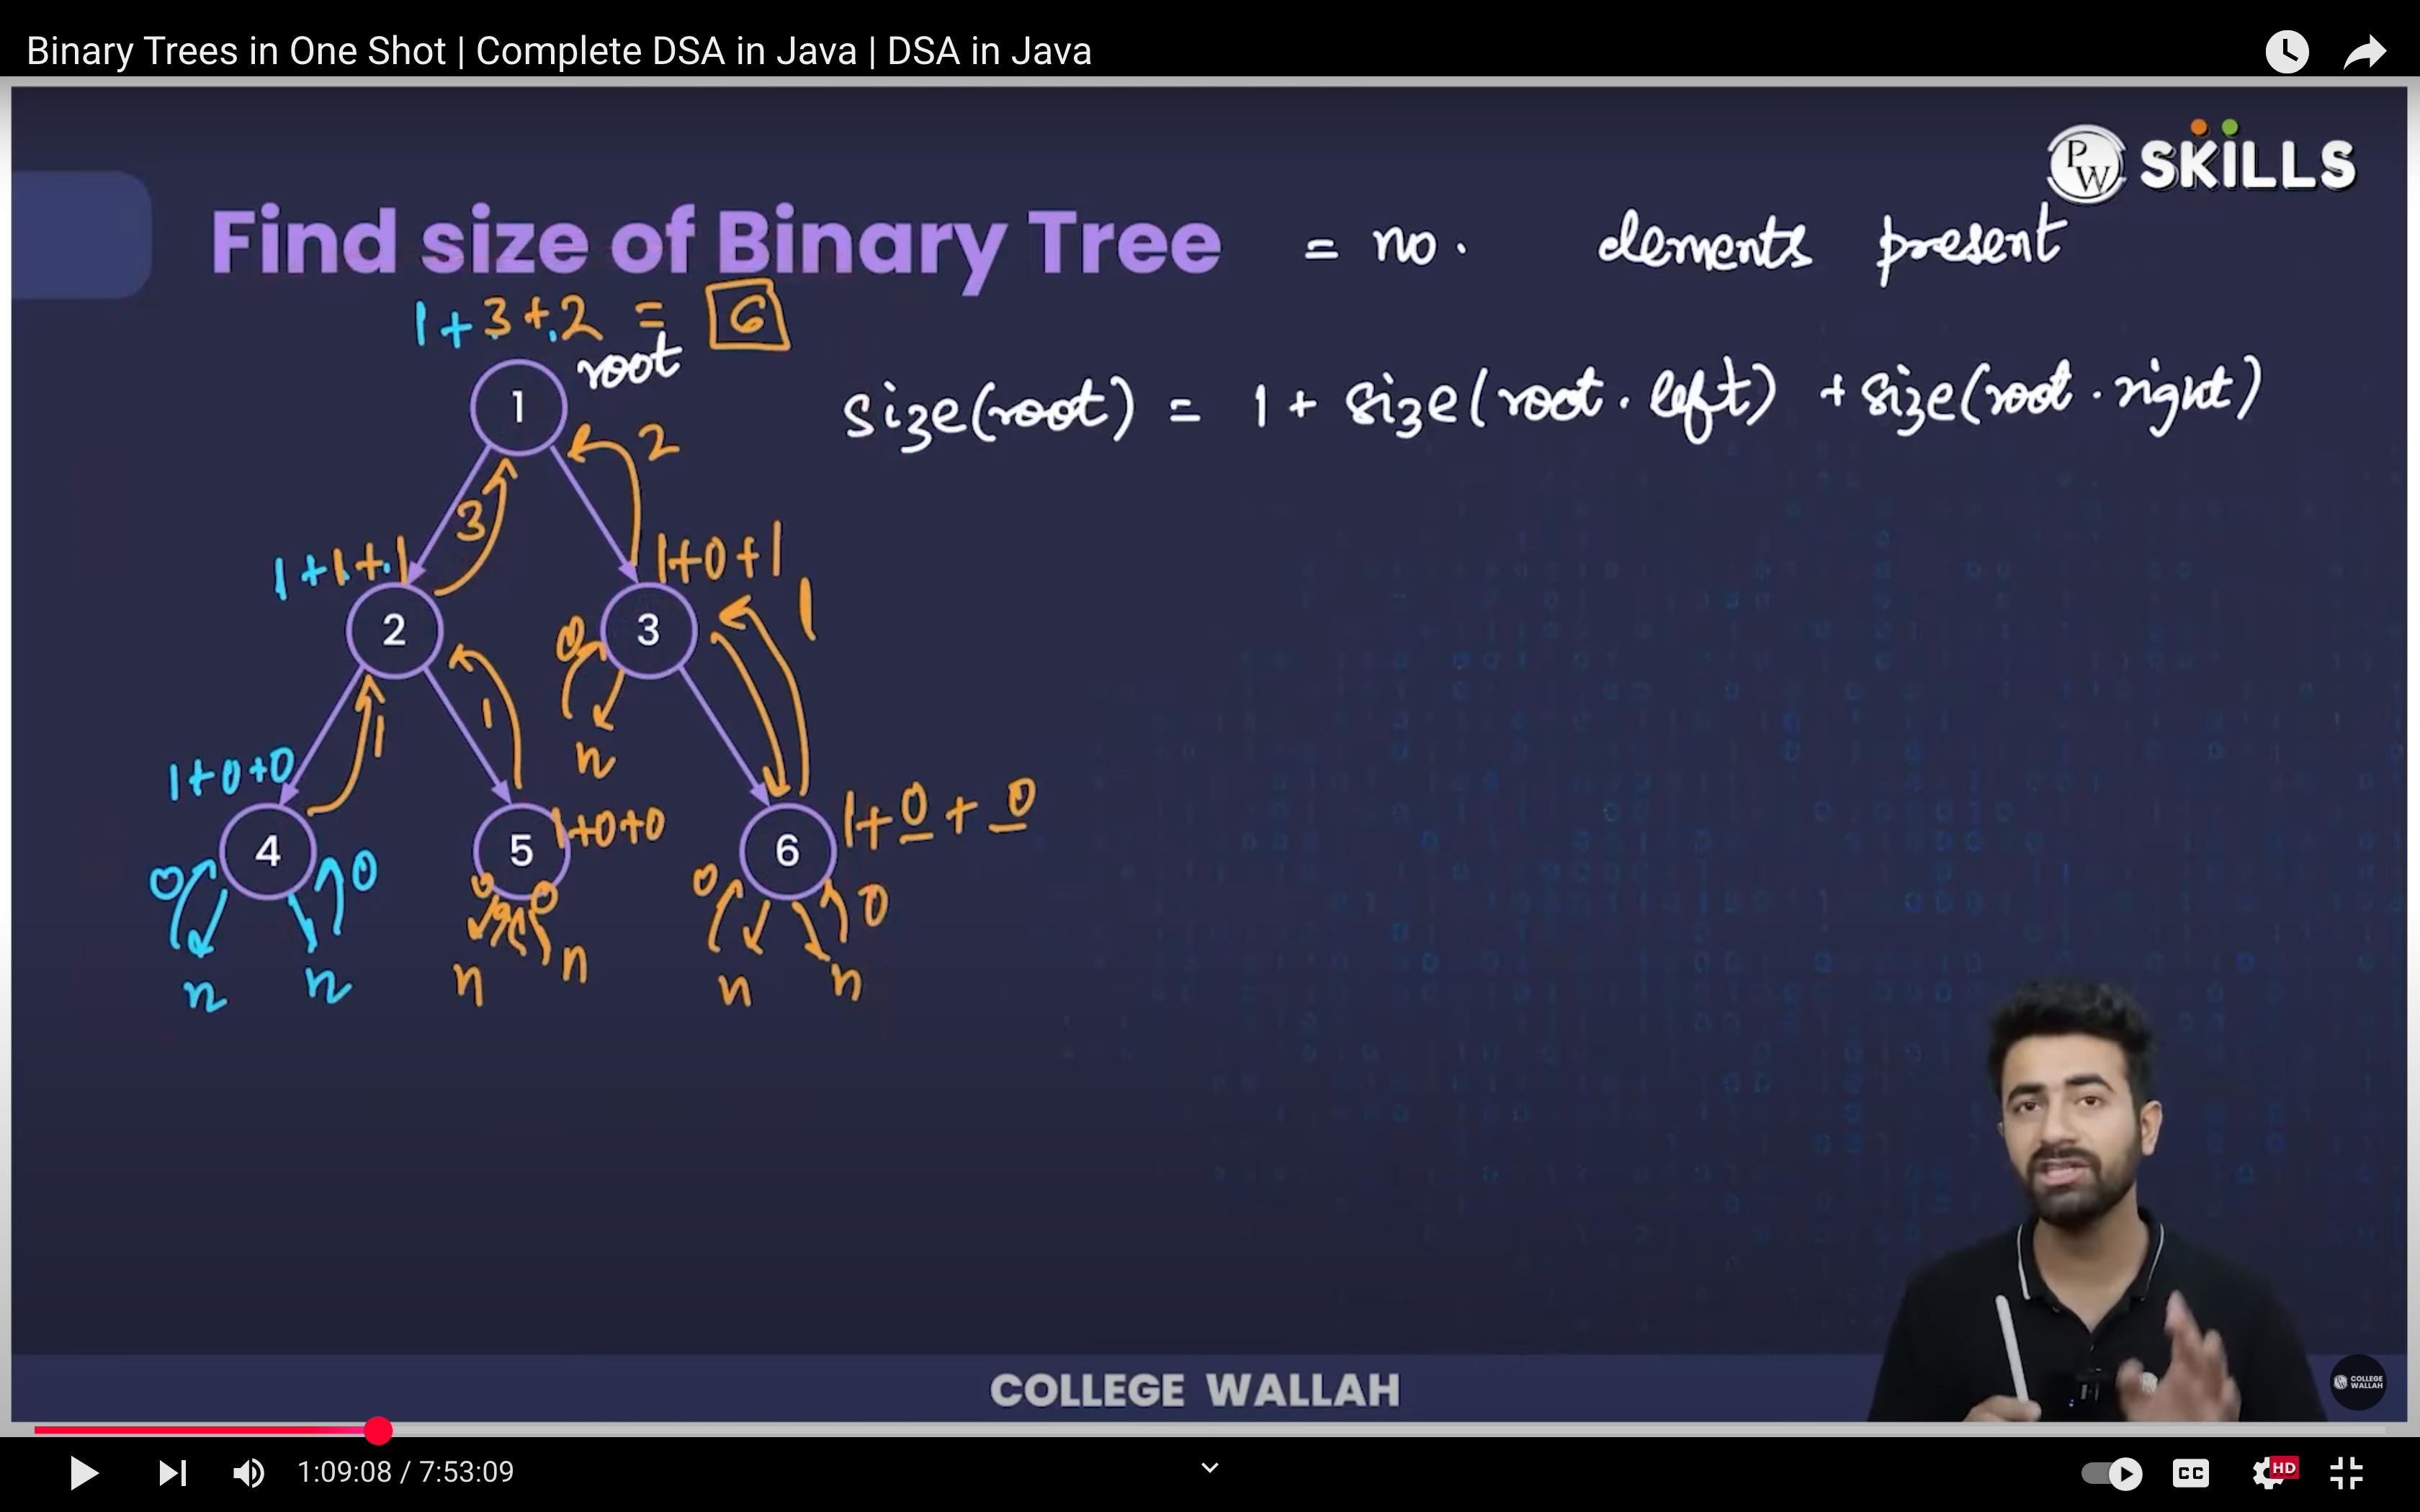 Binary Trees in One Shot | Complete DSA in Java | DSA in Java
PW SKILLS
Find size of Binary Tree = no. elements present
1+3+2 = 6
root
1
size(root) = 1 + size(root.left) + size(root.right)
2
3
1+1+1
1+0+1
1
2
0
3
1
1
n
1+0+0
4
5
1+0+0
6
1+0+0
0
0
0
0
0
0
n
n
n
n
n
n
COLLEGE WALLAH
COLLEGE WALLAH
1:09:08 / 7:53:09
CC
HD